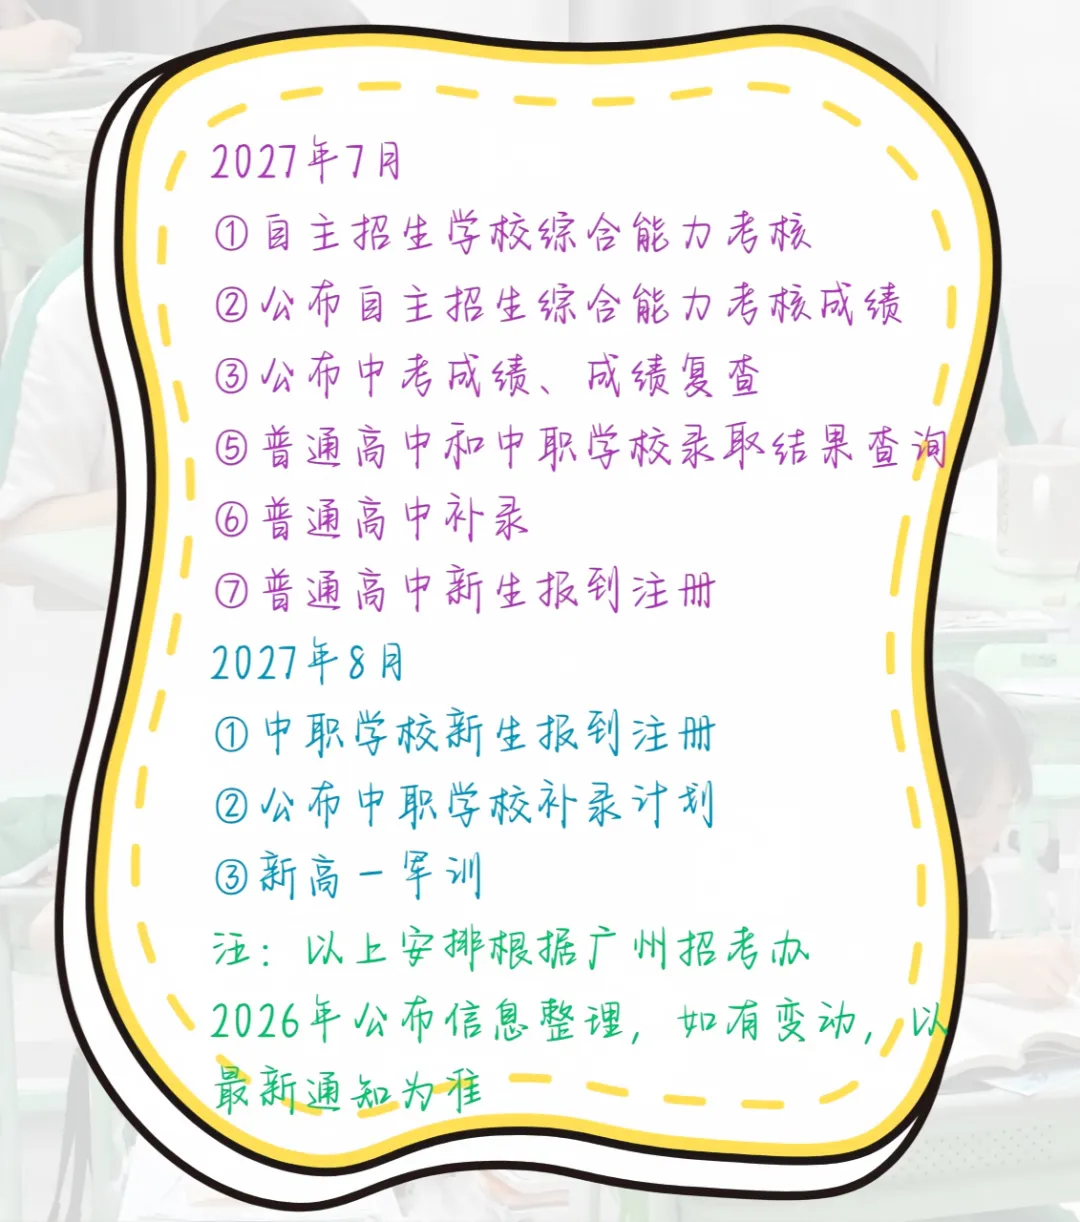 2027年7月
①自主招生学校综合能力考核
②公布自主招生综合能力考核成绩
③公布中考成绩、成绩复查
⑤普通高中和中职学校录取结果查询
⑥普通高中补录
⑦普通高中新生报到注册
2027年8月
①中职学校新生报到注册
②公布中职学校补录计划
③新高一军训
注：以上安排根据广州招考办
2026年公布信息整理，如有变动，以
最新通知为准